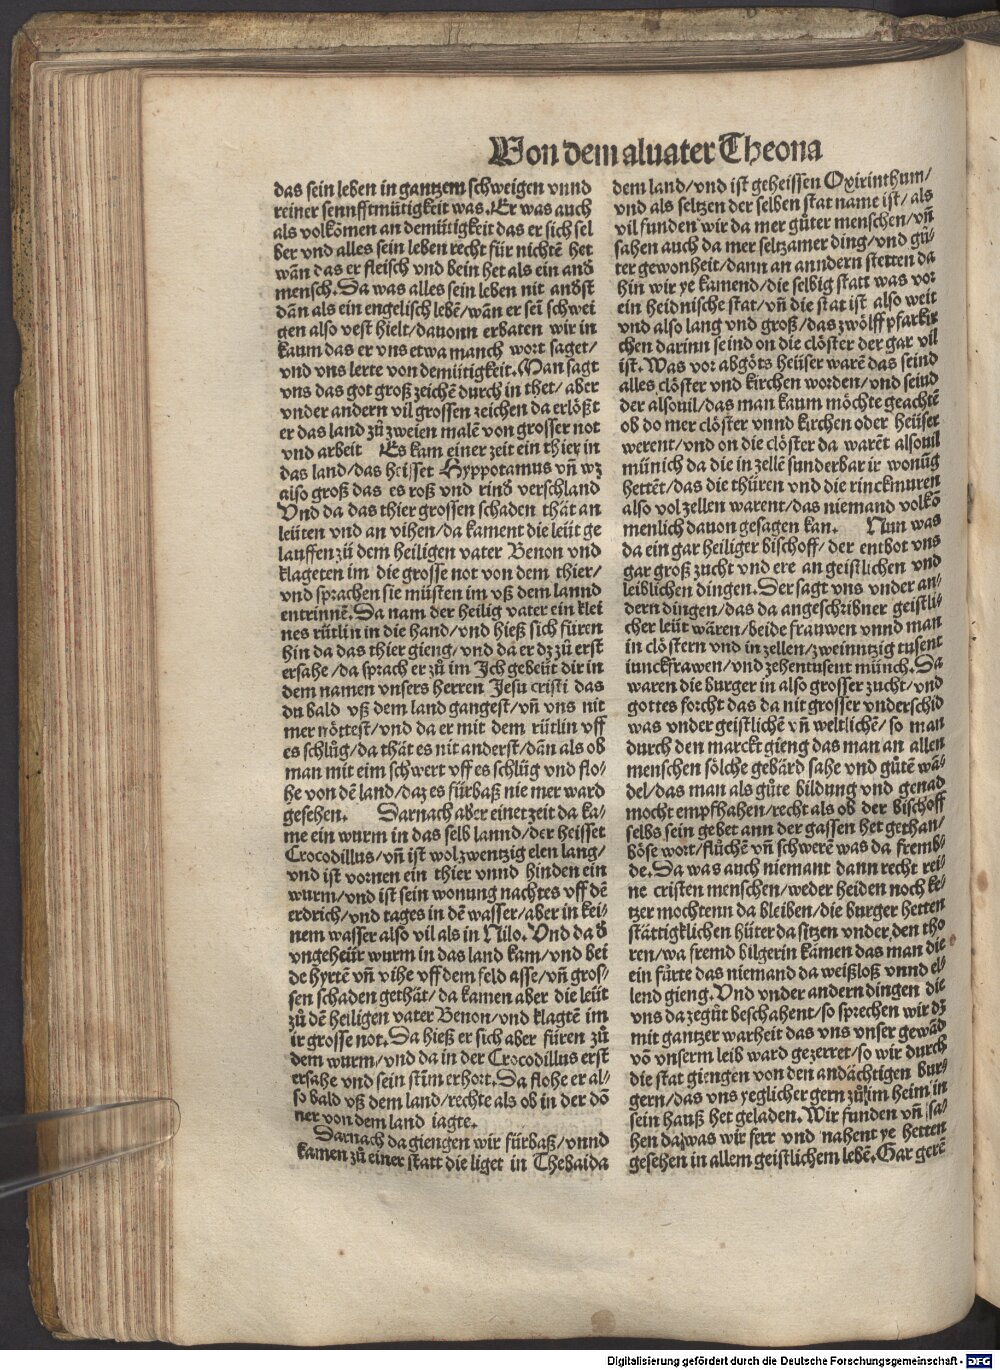 Von dem aluater Theona
das sein leben in gantzem schweigen vnnd
reiner sennfftmütigkeit was. Er was auch
als volkōmen an demütigkeit das er sich sel
ber vnd alles sein leben recht für nichtē het
wān das er fleisch vnd bein het als ein and
mensch. Da was alles sein leben nit andst
dān als ein engelisch lebē/wan er sei schwei
gen also vest hielt/dauonn erbaten wir in
kaum das er vns etwa manch wort saget/
vnd vns lerte von demütigkeit. Man sagt
vns das got groß zeichē durch in thet/aber
vnder andern vil grossen zeichen da erlößt
er das land zů zweien malē von grosser not
vnd arbeit Es kam einer zeit ein thier in
das land/das heisset Hyppotamus vn̄ wz
also groß das es roß vnd rind verschland
Vnd da das thier grossen schaden thät an
leüten vnd an vihen/da kament die leüt ge
lauffen zů dem heiligen vater Benon vnd
klageten im die grosse not von dem thier/
vnd sprachen sie müsten im vß dem lannd
entrinnē. Da nam der heilig vater ein klei
nes rütlin in die hand/vnd hieß sich füren
hin da das thier gieng/vnd da er dz zů erst
ersahe/da sprach er zů im Ich gebeüt dir in
dem namen vnsers herren Jesu cristi das
du bald vß dem land gangest/vn̄ vns nit
mer nöttest/vnd da er mit dem rütlin vff
es schlůg/da thät es nit anderst/dān als ob
man mit eim schwert vff es schlůg vnd flo/
he von dē land/daz es fürbaß nie mer ward
gesehen. Darnach aber einer zeit da ka/
me ein wurm in das selb lannd/der heisset
Crocodillus/vn̄ ist wol zwentzig elen lang/
vnd ist vornen ein thier vnnd hinden ein
wurm/vnd ist sein wonung nachtes vff dē
erdrich/vnd tages in dē wasser/aber in kei/
nem wasser also vil als in Nilo. Vnd da d
vngeheür wurm in das land kam/vnd bei
de hyrtē vn̄ vihe vff dem feld asse/vn̄ gros/
sen schaden gethät/da kamen aber die leüt
zů dē heiligen vater Benon/vnd klagtē im
ir grosse not. Da hieß er sich aber füren zů
dem wurm/vnd da in der Crocodillus erst
ersahe vnd sein stīm erhort. Da flohe er al/
so bald vß dem land/rechte als ob in der dō
ner von dem land iagte.
Darnach da giengen wir fürbaß/vnnd
kamen zů einer statt die liget in Thebaida
dem land/vnd ist geheissen Oxirinthum/
vnd als seltzen der selben stat name ist/als
vil funden wir da mer gůter menschen/vn̄
sahen auch da mer seltzamer ding/vnd gů/
ter gewonheit/dann an anndern stetten da
hin wir ye kamend/die selbig statt was vor
ein heidnische stat/vn̄ die stat ist also weit
vnd also lang vnd groß/das zwölff pfarkir
chen darinn seind on die clöster der gar vil
ist. Was vor abgöts heüser warē das seind
alles clöster vnd kirchen worden/vnd seind
der alsouil/das man kaum möchte geachtē
ob do mer clöster vnnd kirchen oder heüser
werent/vnd on die clöster da warēt alsouil
münich da die in zellē sunderbar ir wonūg
hettēt/das die thüren vnd die rinckmuren
also vol zellen warent/das niemand volkō
menlich dauon gesagen kan. Nun was
da ein gar heiliger bischoff/der entbot vns
gar groß zucht vnd ere an geistlichen vnd
leiblichen dingen. Der sagt vns vnder an/
dern dingen/das da angeschribner geistli/
cher leüt wären/beide frauwen vnnd man
in clöstern vnd in zellen/zweinntzig tusent
iunckfrawen/vnd zehentusent münch. Da
waren die burger in also grosser zucht/vnd
gottes forcht das da nit grosser vnderschid
was vnder geistlichē vn̄ weltlichē/so man
durch den marckt gieng das man an allen
menschen sölche gebärd sahe vnd gůtē wā/
del/das man als gůte bildung vnd genad
mocht empfhahen/recht als ob der bischoff
selbs sein gebet ann der gassen het gethan/
böse wort/flůchē vn̄ schwerē was da fremb/
de. Da was auch niemant dann recht rei/
ne cristen menschen/weder heiden noch ke/
tzer mochtenn da bleiben/die burger hetten
stättigklichen hüter da sitzen vnder den tho
ren/wa fremd bilgerin kämen das man die
ein fürte das niemand da weißloß vnnd el/
lend gieng. Vnd vnder andern dingen die
vns da zegůt beschahent/so sprechen wir dz
mit gantzer warheit das vns vnser gewād
vō vnserm leib ward gezerret/so wir durch
die stat giengen von den andächtigen bur/
gern/das vns yeglicher gern zů im heim in
sein hauß het geladen. Wir funden vn̄ sa/
hen da was wir ferr vnd nahent ye hetten
gesehen in allem geistlichem lebē. Gar gerē
Digitalisierung gefördert durch die Deutsche Forschungsgemeinschaft - DFG